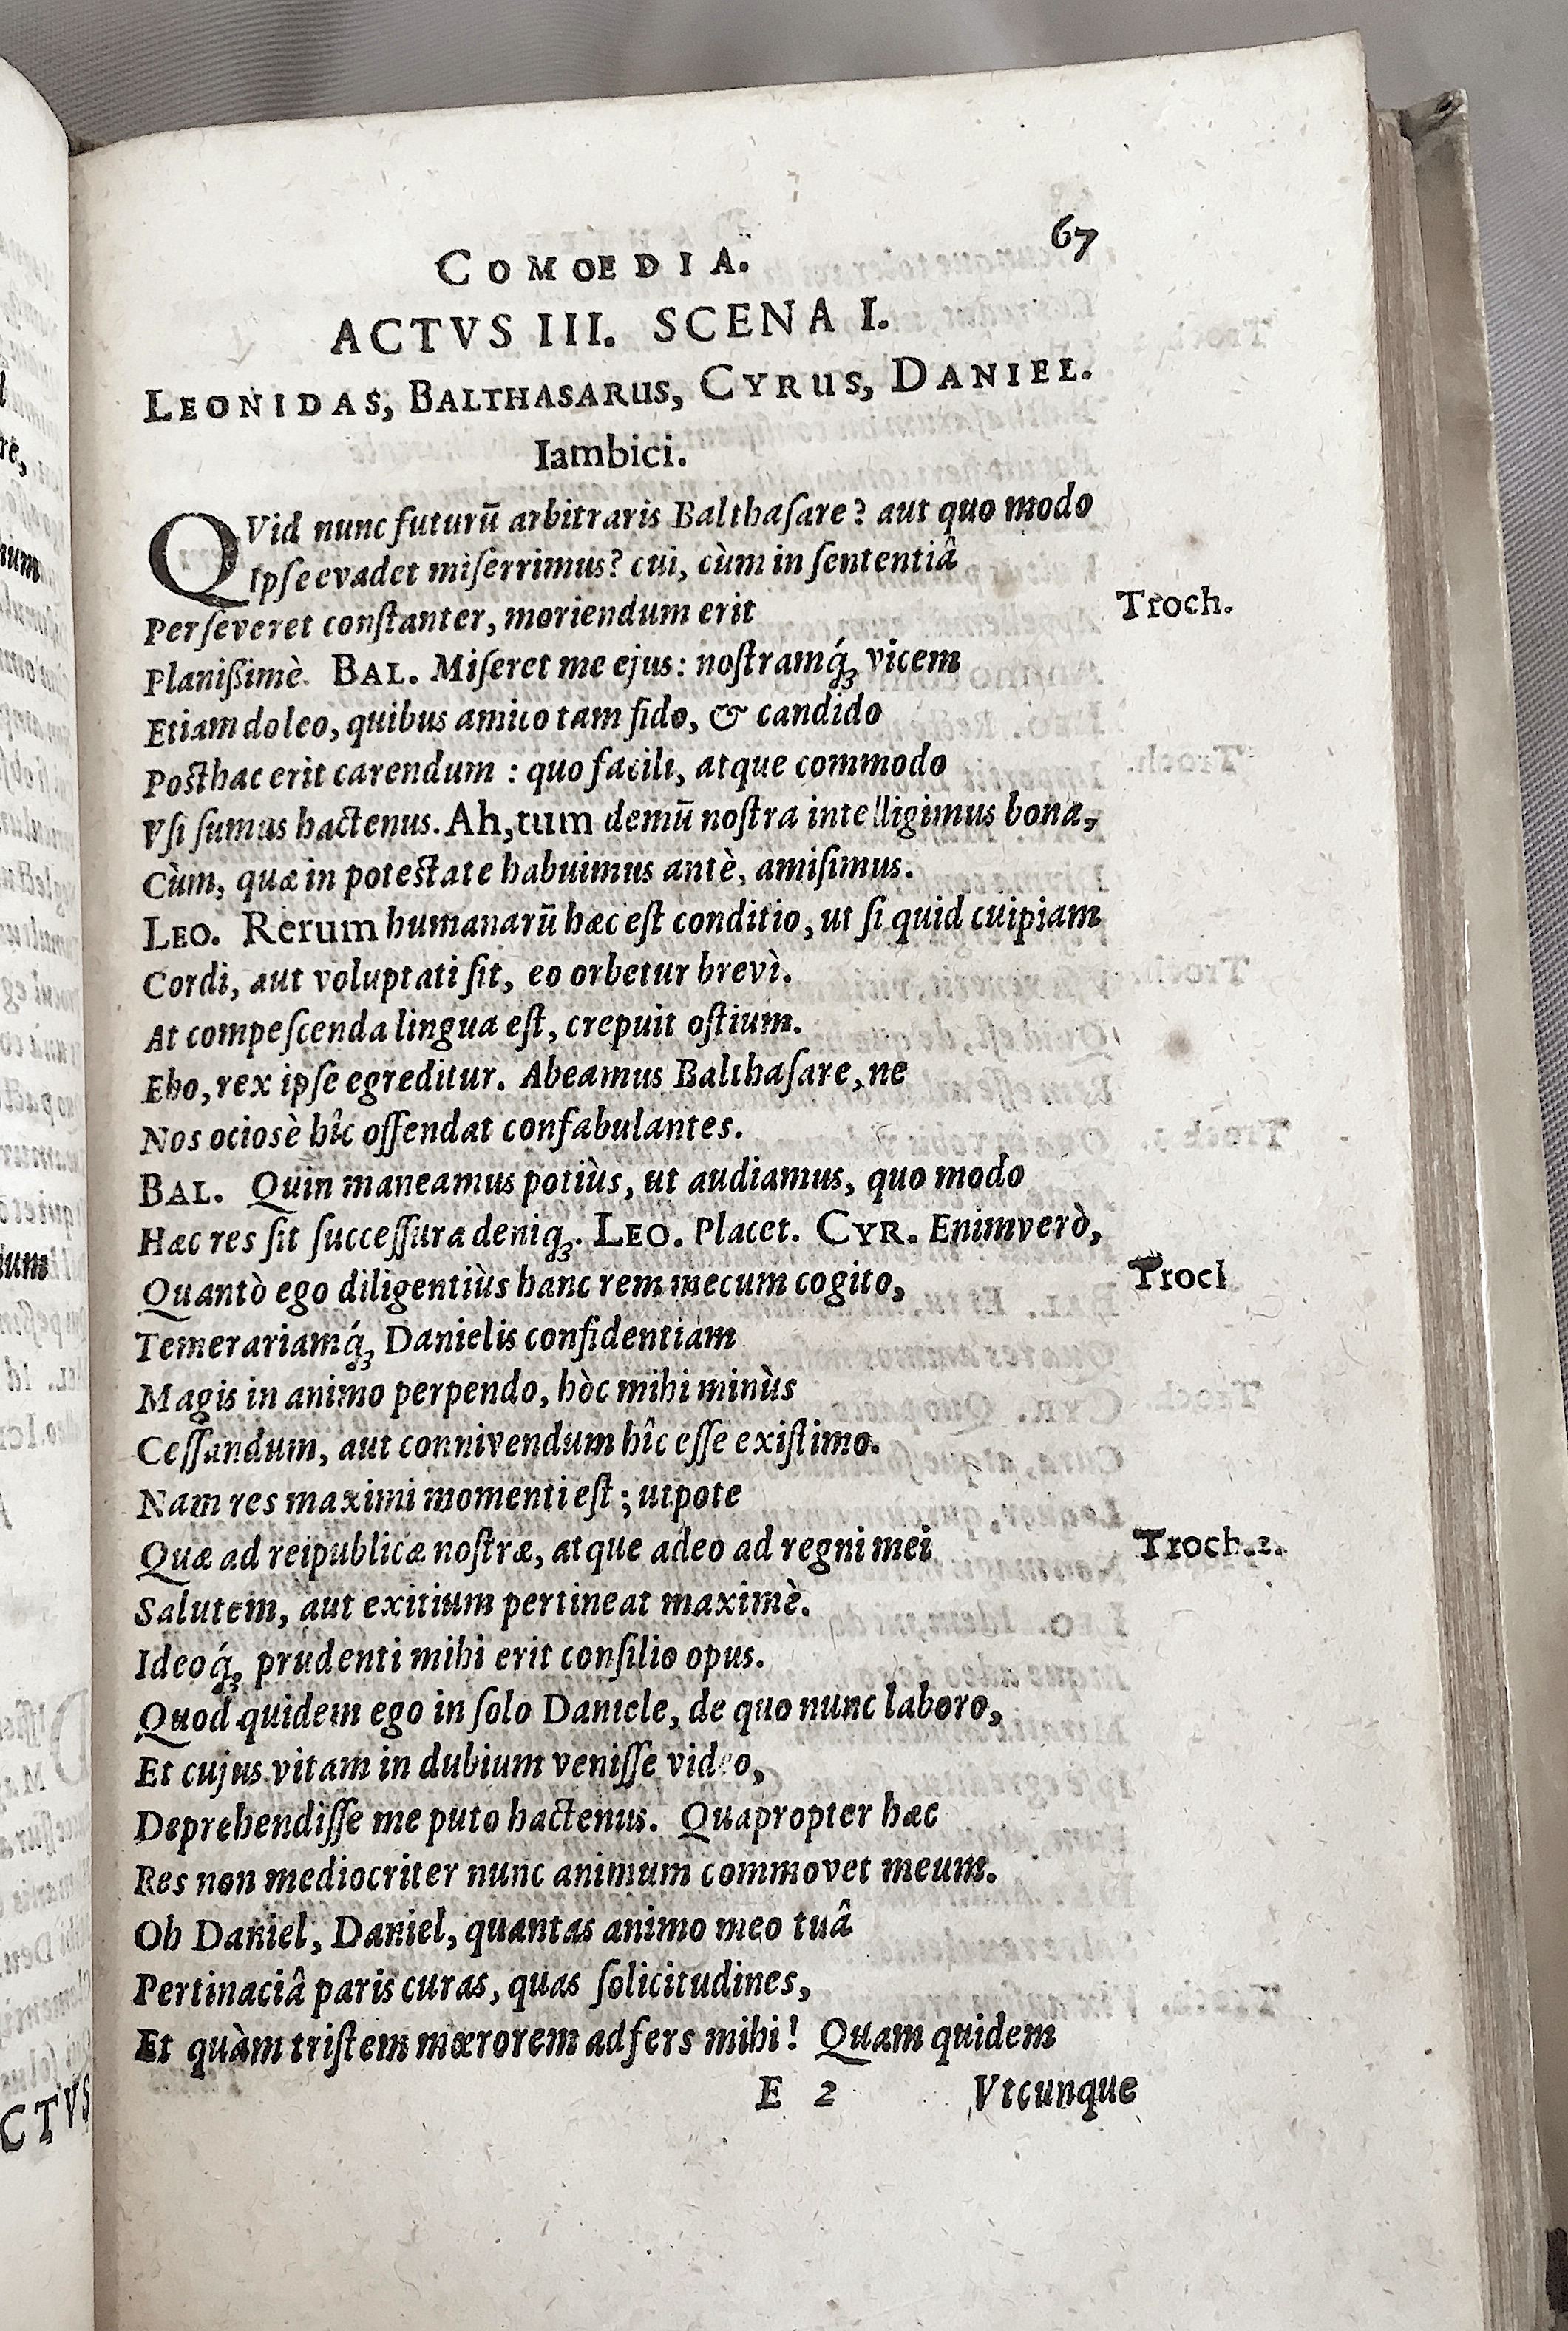 COMOEDIA. 67
ACTVS III. SCENA I.
LEONIDAS, BALTHASARUS, CYRUS, DANIEL.
Iambici.
QVid nunc futurū arbitraris Balthaſare? aut quo modo
Ipſe evadet miſerrimus? cui, cùm in ſententiâ
Perſeveret conſtanter, moriendum erit Troch.
Planißimè. BAL. Miſeret me ejus: noſtramq́ꝫ vicem
Etiam doleo, quibus amico tam fido, & candido
Poſthac erit carendum : quo facili, atque commodo
Vſi ſumus hactenus. Ah, tum demū noſtra intelligimus bona,
Cùm, quæ in poteſtate habuimus antè, amiſimus.
LEO. Rerum humanarū hæc eſt conditio, ut ſi quid cuipiam
Cordi, aut voluptati ſit, eo orbetur brevì.
At compeſcenda lingua eſt, crepuit oſtium.
Eho, rex ipſe egreditur. Abeamus Balthaſare, ne
Nos ociosè hîc offendat confabulantes.
BAL. Quin maneamus potiùs, ut audiamus, quo modo
Hæc res ſit ſucceſſura deniqꝫ. LEO. Placet. CYR. Enimverò,
Quantò ego diligentiùs hanc rem mecum cogito, Trocl
Temerariamq́ꝫ Danielis confidentiam
Magis in animo perpendo, hòc mihi minùs
Ceſſandum, aut connivendum hîc eſſe exiſtimo.
Nam res maximi momenti eſt ; utpote
Quæ ad reipublicæ noſtræ, atque adeo ad regni mei Troch.2.
Salutem, aut exitium pertineat maximè.
Ideoq́ꝫ prudenti mihi erit conſilio opus.
Quod quidem ego in ſolo Daniele, de quo nunc laboro,
Et cujus vitam in dubium veniſſe video,
Deprehendiſſe me puto hactenus. Quapropter hæc
Res non mediocriter nunc animum commovet meum.
Oh Daniel, Daniel, quantas animo meo tuâ
Pertinaciâ paris curas, quas ſolicitudines,
Et quàm triſtem mœrorem adfers mihi! Quam quidem
E 2 Vtcunque